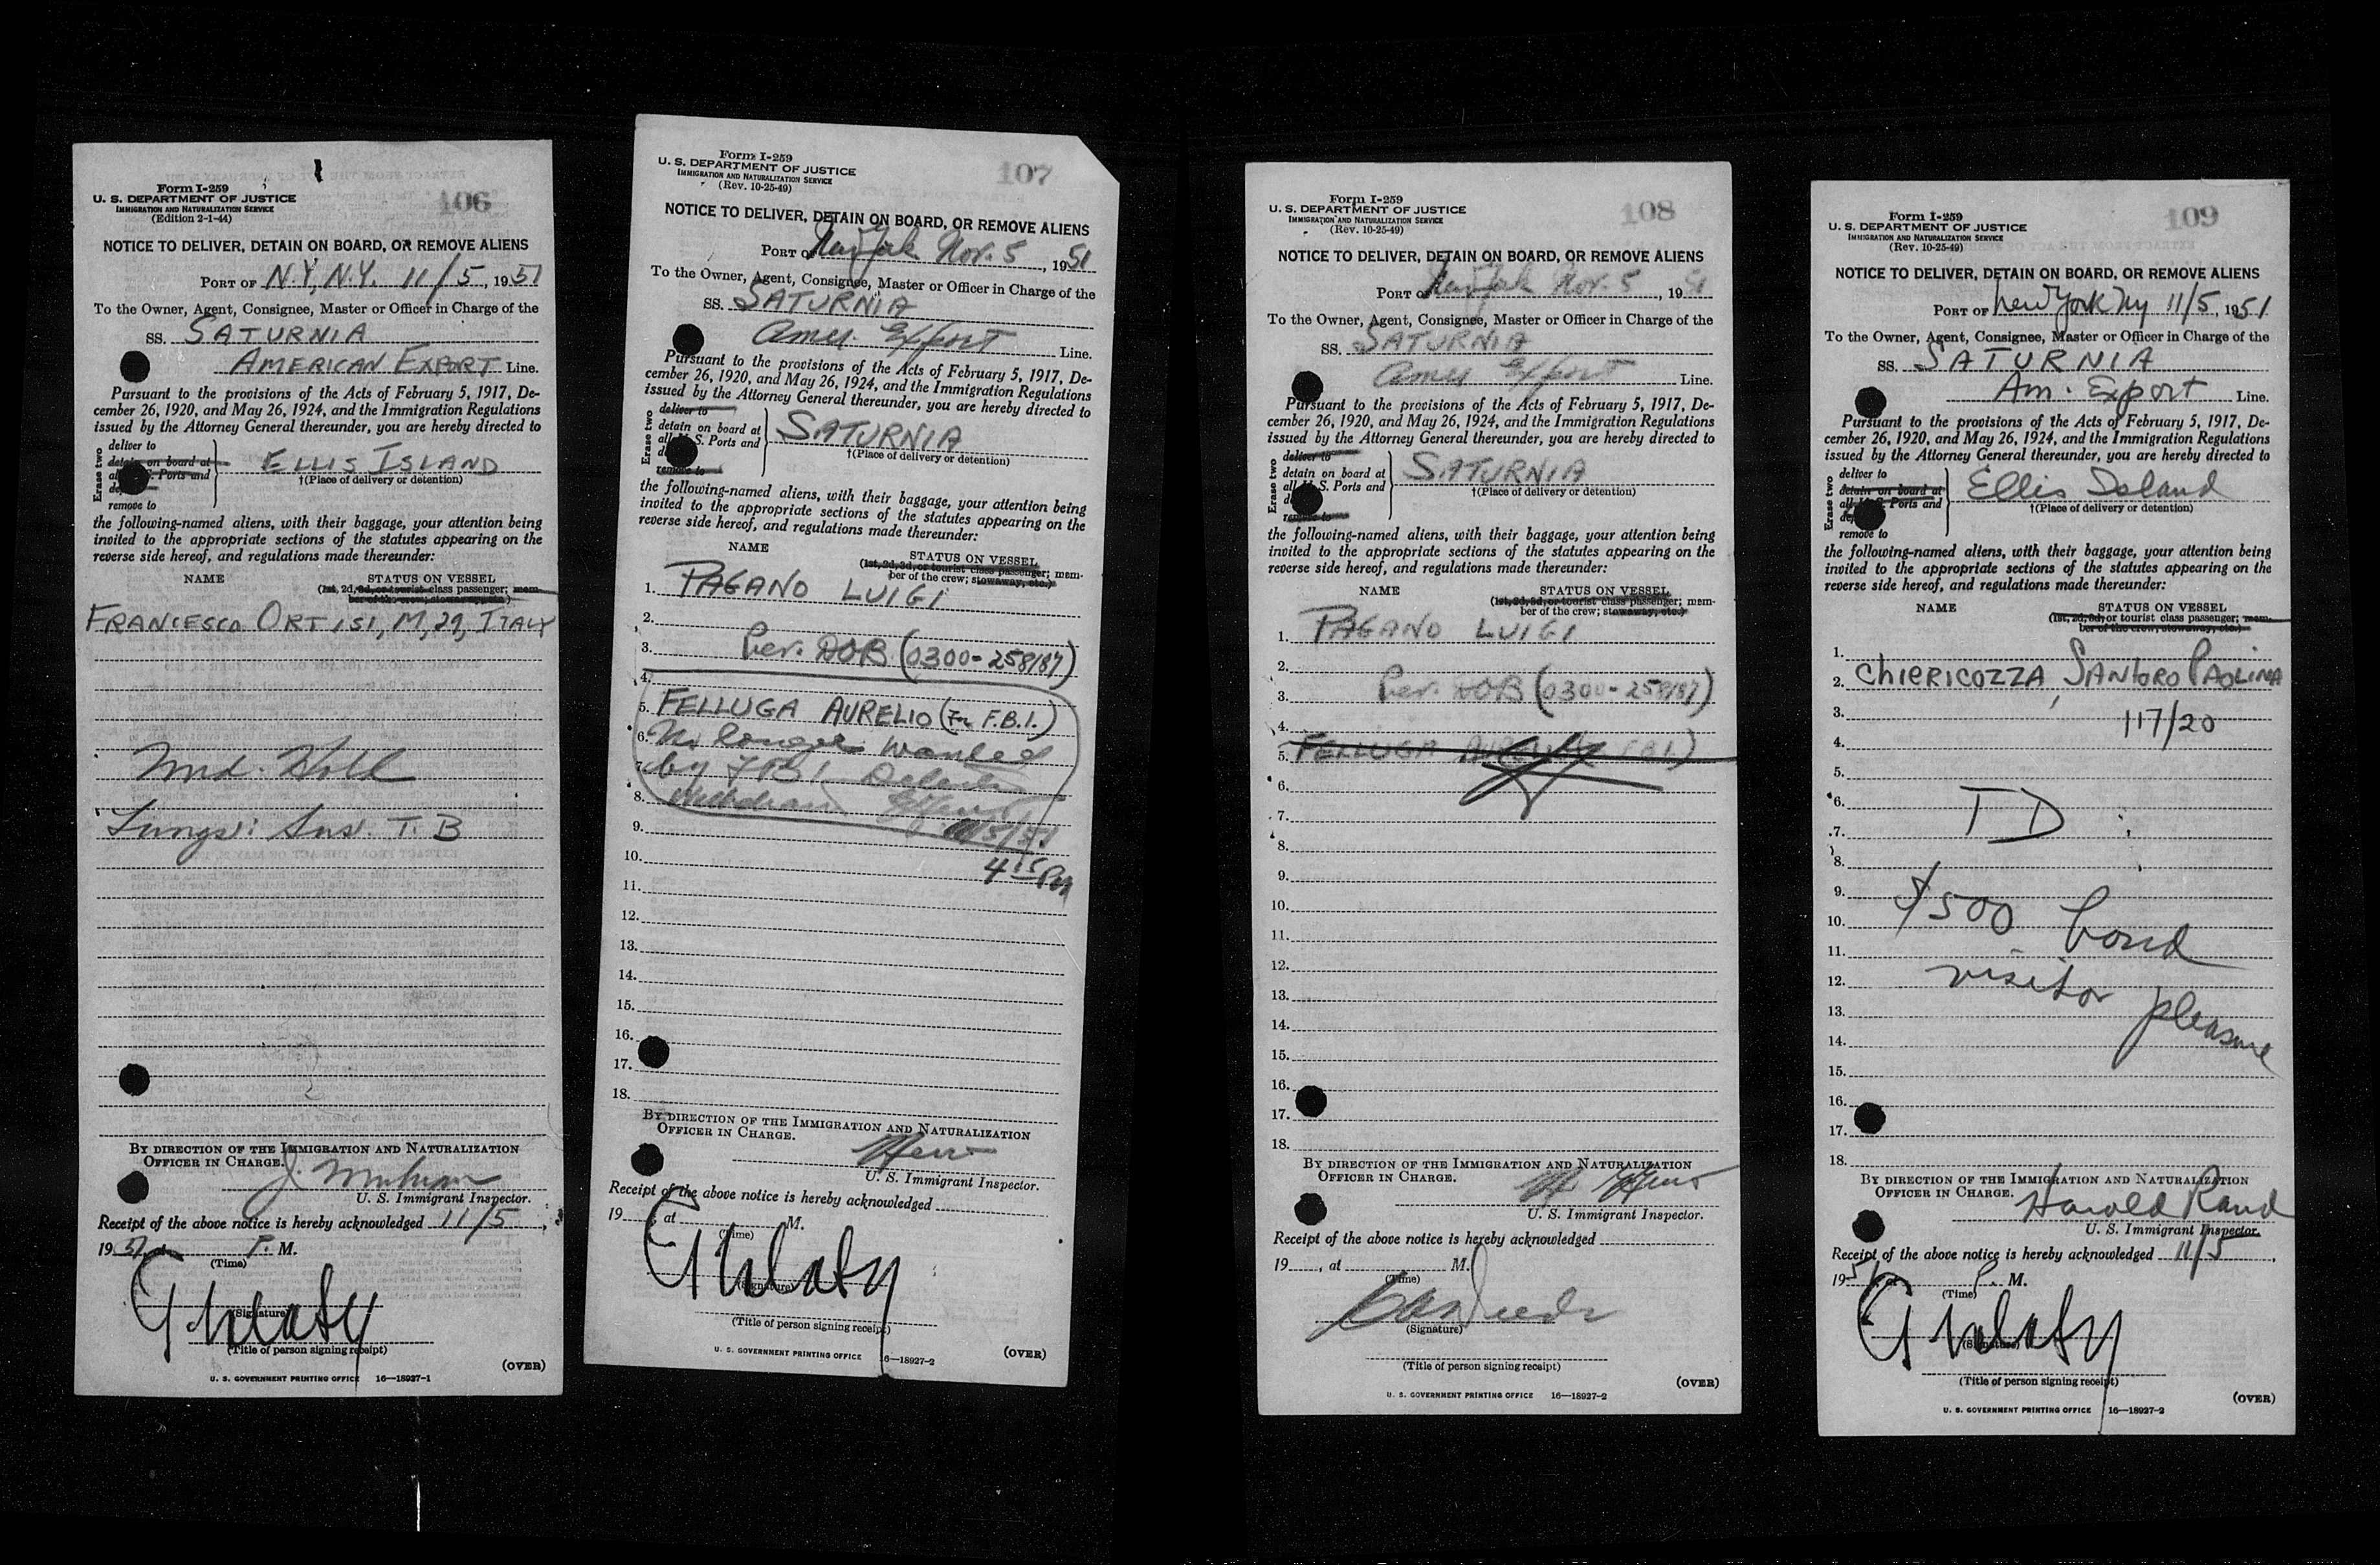 Form I-259
U. S. DEPARTMENT OF JUSTICE
IMMIGRATION AND NATURALIZATION SERVICE
(Edition 2-1-44)
106
NOTICE TO DELIVER, DETAIN ON BOARD, OR REMOVE ALIENS
PORT OF N.Y., N.Y. 11/5, 1951
To the Owner, Agent, Consignee, Master or Officer in Charge of the
SS. SATURNIA
AMERICAN EXPORT Line.
Pursuant to the provisions of the Acts of February 5, 1917, De-
cember 26, 1920, and May 26, 1924, and the Immigration Regulations
issued by the Attorney General thereunder, you are hereby directed to
Erase two
deliver to
detain on board at
S. Ports and
remove to
ELLIS ISLAND
†(Place of delivery or detention)
the following-named aliens, with their baggage, your attention being
invited to the appropriate sections of the statutes appearing on the
reverse side hereof, and regulations made thereunder:
NAME STATUS ON VESSEL
(1st, 2d, 3d, or tourist class passenger; mem-
ber of the crew, stowaway, etc.)
FRANCESCO ORTISI, M, 29, ITALY
Med. Hold
Lungs: Sus. T. B
BY DIRECTION OF THE IMMIGRATION AND NATURALIZATION
OFFICER IN CHARGE.
J.
U. S. Immigrant Inspector.
Receipt of the above notice is hereby acknowledged 11/5,
1951, at P. M.
(Time)
(Signature)
(Title of person signing receipt)
(OVER)
U. S. GOVERNMENT PRINTING OFFICE 16—18927-1
Form I-259
U. S. DEPARTMENT OF JUSTICE
IMMIGRATION AND NATURALIZATION SERVICE
(Rev. 10-25-49)
107
NOTICE TO DELIVER, DETAIN ON BOARD, OR REMOVE ALIENS
PORT OF New York Nov. 5, 1951
To the Owner, Agent, Consignee, Master or Officer in Charge of the
SS. SATURNIA
Amer. Export Line.
Pursuant to the provisions of the Acts of February 5, 1917, De-
cember 26, 1920, and May 26, 1924, and the Immigration Regulations
issued by the Attorney General thereunder, you are hereby directed to
Erase two
deliver to
detain on board at
all U. S. Ports and
remove to
SATURNIA
†(Place of delivery or detention)
the following-named aliens, with their baggage, your attention being
invited to the appropriate sections of the statutes appearing on the
reverse side hereof, and regulations made thereunder:
NAME STATUS ON VESSEL
(1st, 2d, 3d, or tourist class passenger; mem-
ber of the crew; stowaway, etc.)
1. PAGANO LUIGI
2.
3. Per. DOB (0300-258187)
4.
5. FELLUGA AURELIO (For F.B.I.)
6. No longer wanted
7. by FBI
8. withdrawn
9. 11/5/51
10. 4 15 PM
11.
12.
13.
14.
15.
16.
17.
18.
BY DIRECTION OF THE IMMIGRATION AND NATURALIZATION
OFFICER IN CHARGE.
U. S. Immigrant Inspector.
Receipt of the above notice is hereby acknowledged
19 , at M.
(Time)
(Signature)
(Title of person signing receipt)
U. S. GOVERNMENT PRINTING OFFICE 16—18927-2 (OVER)
Form I-259
U. S. DEPARTMENT OF JUSTICE
IMMIGRATION AND NATURALIZATION SERVICE
(Rev. 10-25-49)
108
NOTICE TO DELIVER, DETAIN ON BOARD, OR REMOVE ALIENS
PORT OF New York Nov. 5, 1951
To the Owner, Agent, Consignee, Master or Officer in Charge of the
SS. SATURNIA
Amer Export Line.
Pursuant to the provisions of the Acts of February 5, 1917, De-
cember 26, 1920, and May 26, 1924, and the Immigration Regulations
issued by the Attorney General thereunder, you are hereby directed to
Erase two
deliver to
detain on board at
all U. S. Ports and
remove to
SATURNIA
†(Place of delivery or detention)
the following-named aliens, with their baggage, your attention being
invited to the appropriate sections of the statutes appearing on the
reverse side hereof, and regulations made thereunder:
NAME STATUS ON VESSEL
(1st, 2d, 3d, or tourist class passenger; mem-
ber of the crew; stowaway, etc.)
1. PAGANO LUIGI
2.
3. Per. DOB (0300-258187)
4.
5. FELLUGA AURELIO FBI)
6.
7.
8.
9.
10.
11.
12.
13.
14.
15.
16.
17.
18.
BY DIRECTION OF THE IMMIGRATION AND NATURALIZATION
OFFICER IN CHARGE.
U. S. Immigrant Inspector.
Receipt of the above notice is hereby acknowledged
19 , at M.
(Time)
(Signature)
(Title of person signing receipt)
(OVER)
U. S. GOVERNMENT PRINTING OFFICE 16—18927-2
Form I-259
U. S. DEPARTMENT OF JUSTICE
IMMIGRATION AND NATURALIZATION SERVICE
(Rev. 10-25-49)
109
NOTICE TO DELIVER, DETAIN ON BOARD, OR REMOVE ALIENS
PORT OF New York Ny 11/5, 1951
To the Owner, Agent, Consignee, Master or Officer in Charge of the
SS. SATURNIA
Am. Export Line.
Pursuant to the provisions of the Acts of February 5, 1917, De-
cember 26, 1920, and May 26, 1924, and the Immigration Regulations
issued by the Attorney General thereunder, you are hereby directed to
Erase two
deliver to
detain on board at
all U. S. Ports and
remove to
Ellis Island
†(Place of delivery or detention)
the following-named aliens, with their baggage, your attention being
invited to the appropriate sections of the statutes appearing on the
reverse side hereof, and regulations made thereunder:
NAME STATUS ON VESSEL
(1st, 2d, 3d, or tourist class passenger; mem-
ber of the crew, stowaway, etc.)
1.
2. CHIERICOZZA, SANTORO PAOLINA
3. 117/20
4.
5.
6. TD
7.
8.
9. $500 bond
10.
11.
12. visitor pleasure
13.
14.
15.
16.
17.
18.
BY DIRECTION OF THE IMMIGRATION AND NATURALIZATION
OFFICER IN CHARGE.
Harold Rand
U. S. Immigrant Inspector.
Receipt of the above notice is hereby acknowledged 11/5,
1951, at P. M.
(Time)
(Signature)
(Title of person signing receipt)
(OVER)
U. S. GOVERNMENT PRINTING OFFICE 16—18927-2